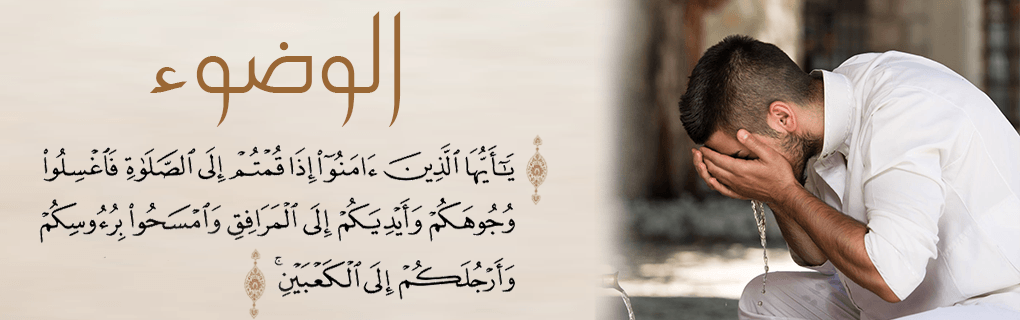 الوضوء
يَٰٓأَيُّهَا ٱلَّذِينَ ءَامَنُوٓا۟ إِذَا قُمْتُمْ إِلَى ٱلصَّلَوٰةِ فَٱغْسِلُوا۟
وُجُوهَكُمْ وَأَيْدِيَكُمْ إِلَى ٱلْمَرَافِقِ وَٱمْسَحُوا۟ بِرُءُوسِكُمْ
وَأَرْجُلَكُمْ إِلَى ٱلْكَعْبَيْنِ ۚ